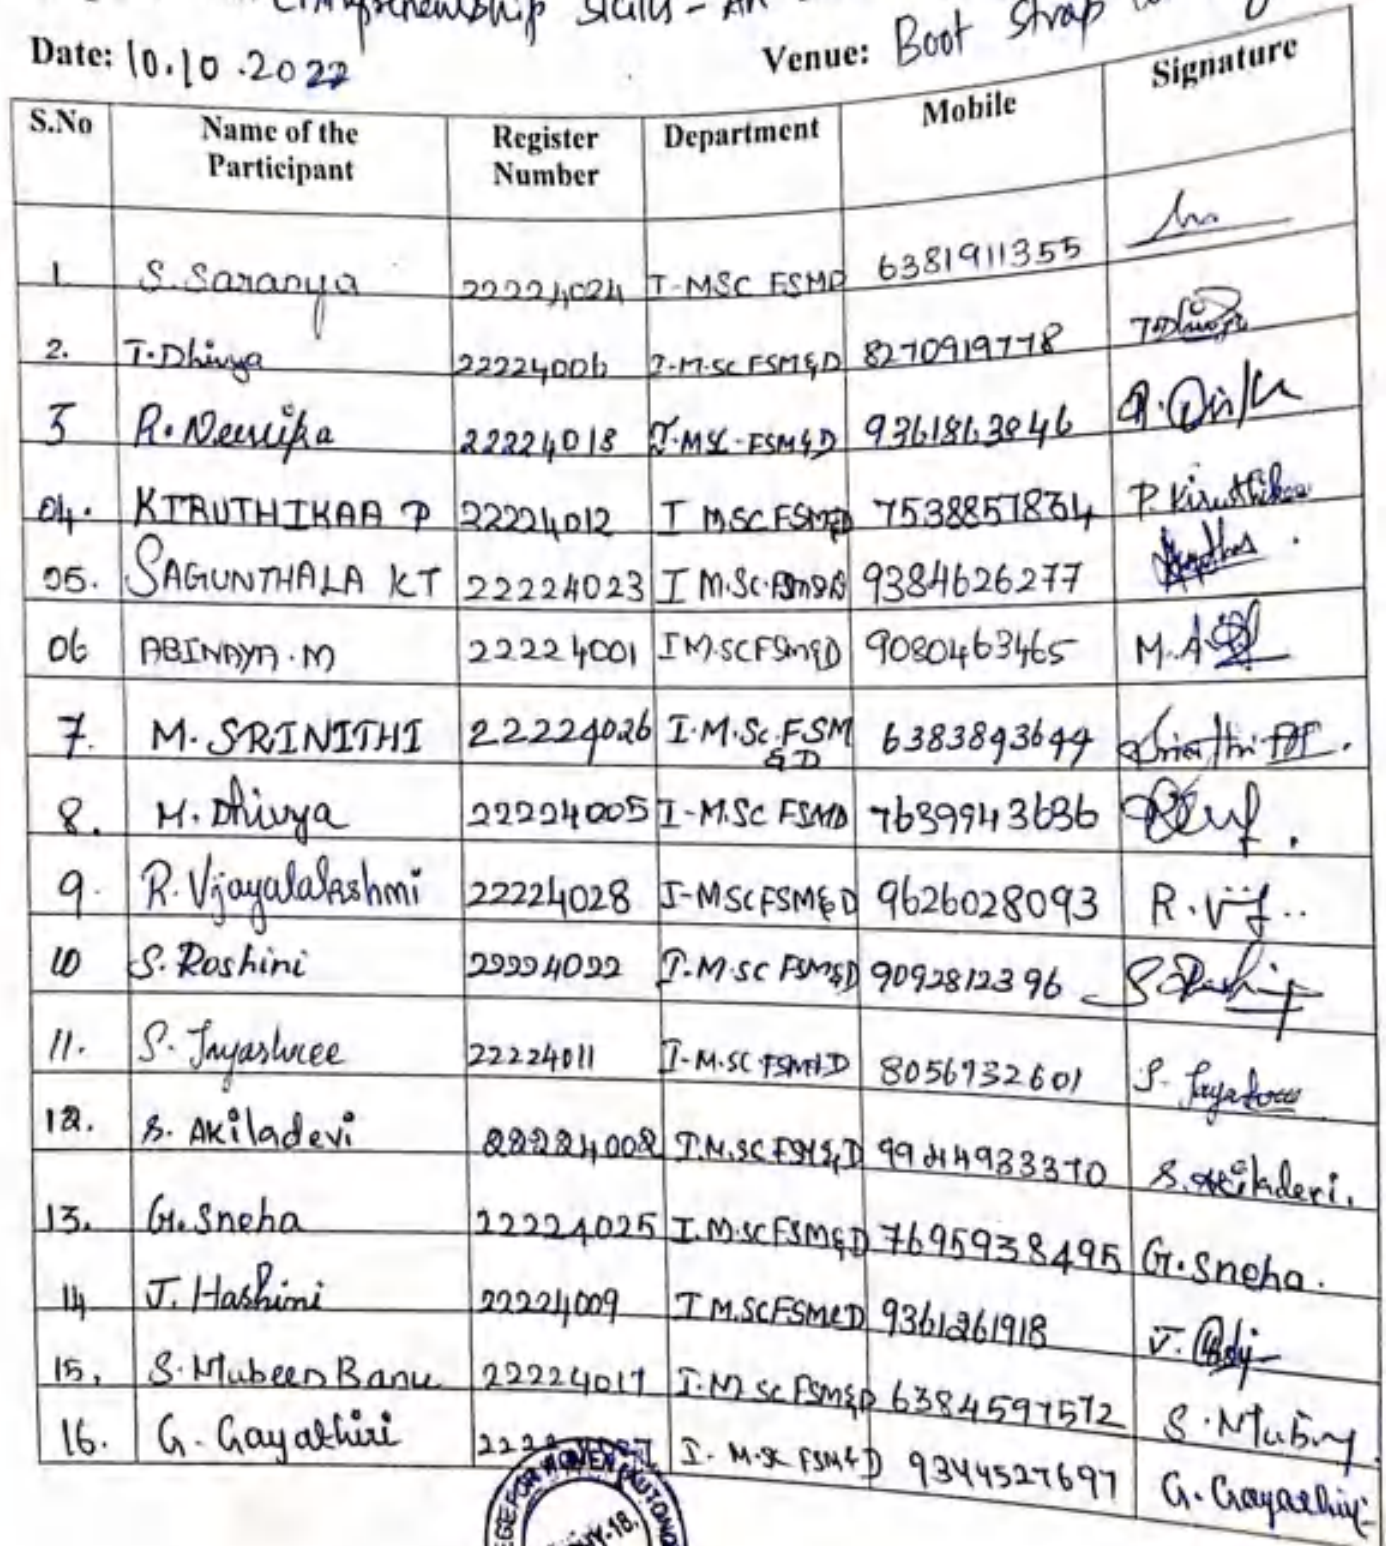 Entrepreneurship Skills - An
Date: 10.10.2022 Venue: Boot Strap
S.No Name of the Participant Register Number Department Mobile Signature
1. S. Saranya 22224024 I-MSC FSMD 6381911355
2. T. Dhivya 22224006 I-M.Sc FSM&D 8270919778 T. Dhivya
3 R. Neerija 22224018 I-MSC-FSM&D 9361813846
04. KIRUTHIKAA P 22224012 I MSC FSM&D 7538857834 P. Kiruthikaa
05. SAGUNTHALA KT 22224023 I M.Sc.FSM&D 9384626277
06 ABINAYA.M 22224001 I M.SC FSM&D 9080463465 M.A
7. M. SRINITHI 22224026 I.M.Sc.FSM &D 6383893699
8. M. Dhivya 22224005 I-M.SC FSMD 7639943636
9. R. Vijayalakshmi 22224028 I-MSC FSM&D 9626028093 R. Vij..
10 S. Roshini 22224022 I.M.SC FSM&D 9092812396
11. S. Jayashree 22224011 I-M.SC FSM&D 8056932601 S. Jayashree
12. S. Akiladevi 22224002 I.M.SC FSM&D 9944933370 S. Akiladevi.
13. G. Sneha 22224025 I.M.SC FSM&D 7695938495 G. Sneha.
14 J. Hashini 22224009 I M.SC FSM&D 9361261918 J.
15. S. Mubeen Banu 22224017 I.M SC FSM&D 6384597572 S. Mubin
16. G. Gayathiri 222 I. M.SC FSM&D 9344527697 G. Gayathiri
EGE FOR WOMEN (AUTONO
HY-18.